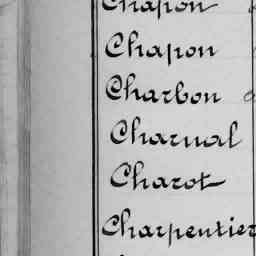 Chapon
Chapon
Charbon
Charnal
Charot
Charpentier